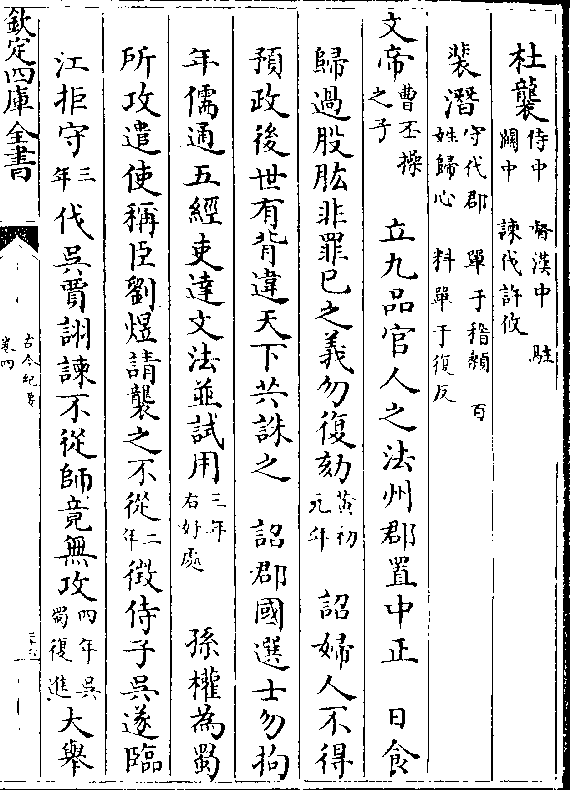 杜襲侍中 督漢中 駐
關中 諫伐許攸
裴潛守代郡 單于稽顙 百
姓歸心 料單于復反
文帝曹丕操
之子 立九品官人之法州郡置中正 日食
歸過股肱非罪已之義勿復劾黃初
元年 詔婦人不得
預政後世有背違天下共誅之 詔郡國選士勿拘
年儒通五經吏達文法並試用三年
右好處 孫權為蜀
所攻遣使稱臣劉煜請襲之不從二
年徴侍子吳遂臨
江拒守三
年伐吳賈詡諫不從師竟無攻四年吳
蜀復進大舉
欽定四庫全書
古今紀要
卷四